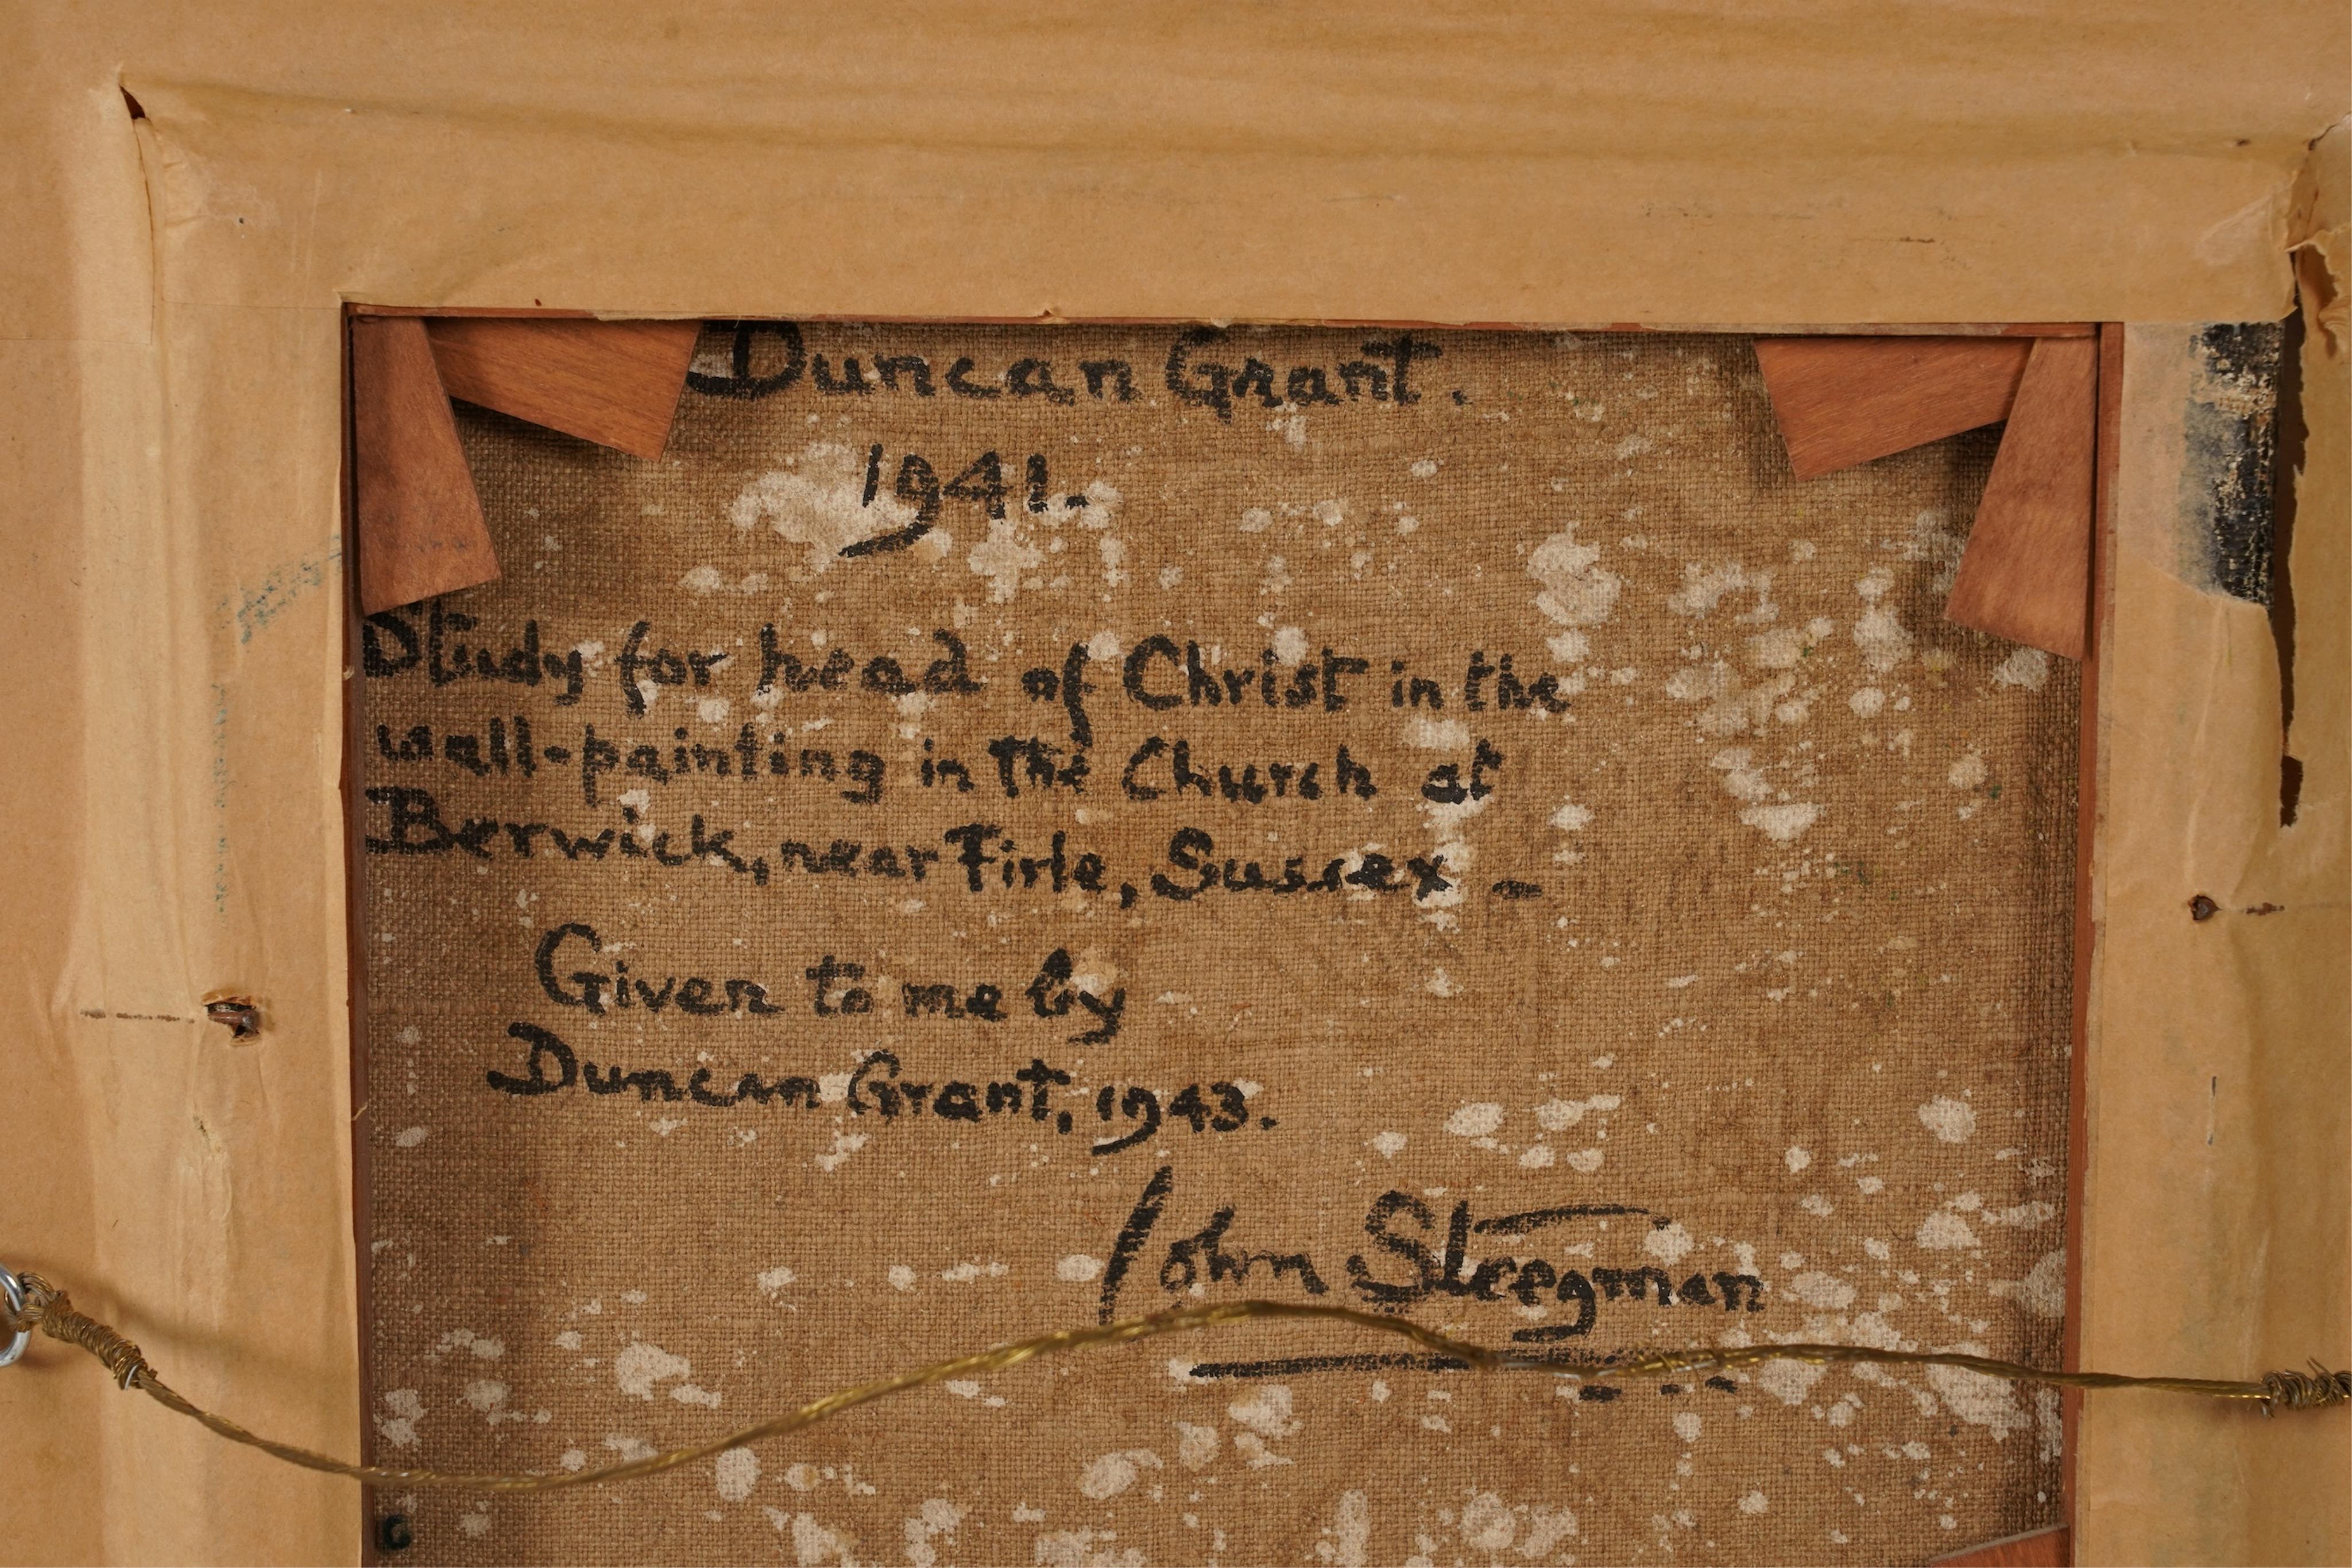 Duncan Grant.
1941.
Study for head of Christ in the
wall-painting in the Church at
Berwick, near Firle, Sussex -
Given to me by
Duncan Grant, 1943.
John Steegman